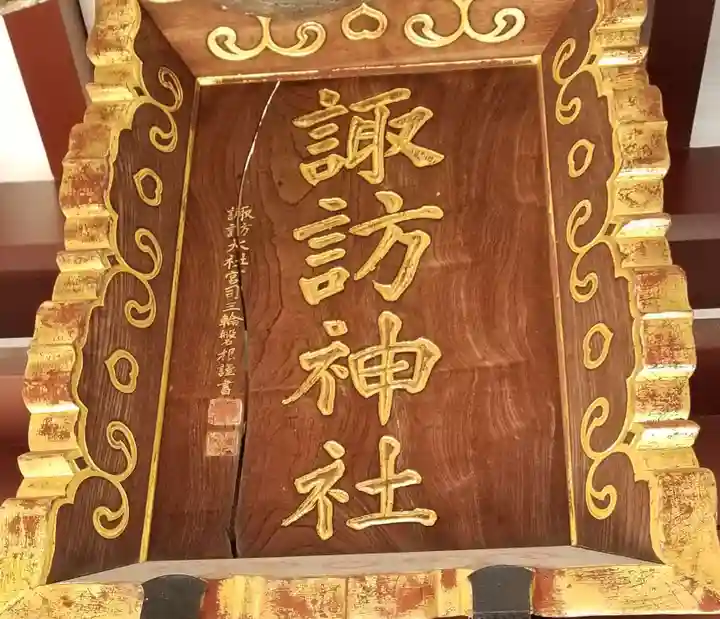 諏訪神社
諏訪大社
諏訪大社宮司三輪磐根謹書